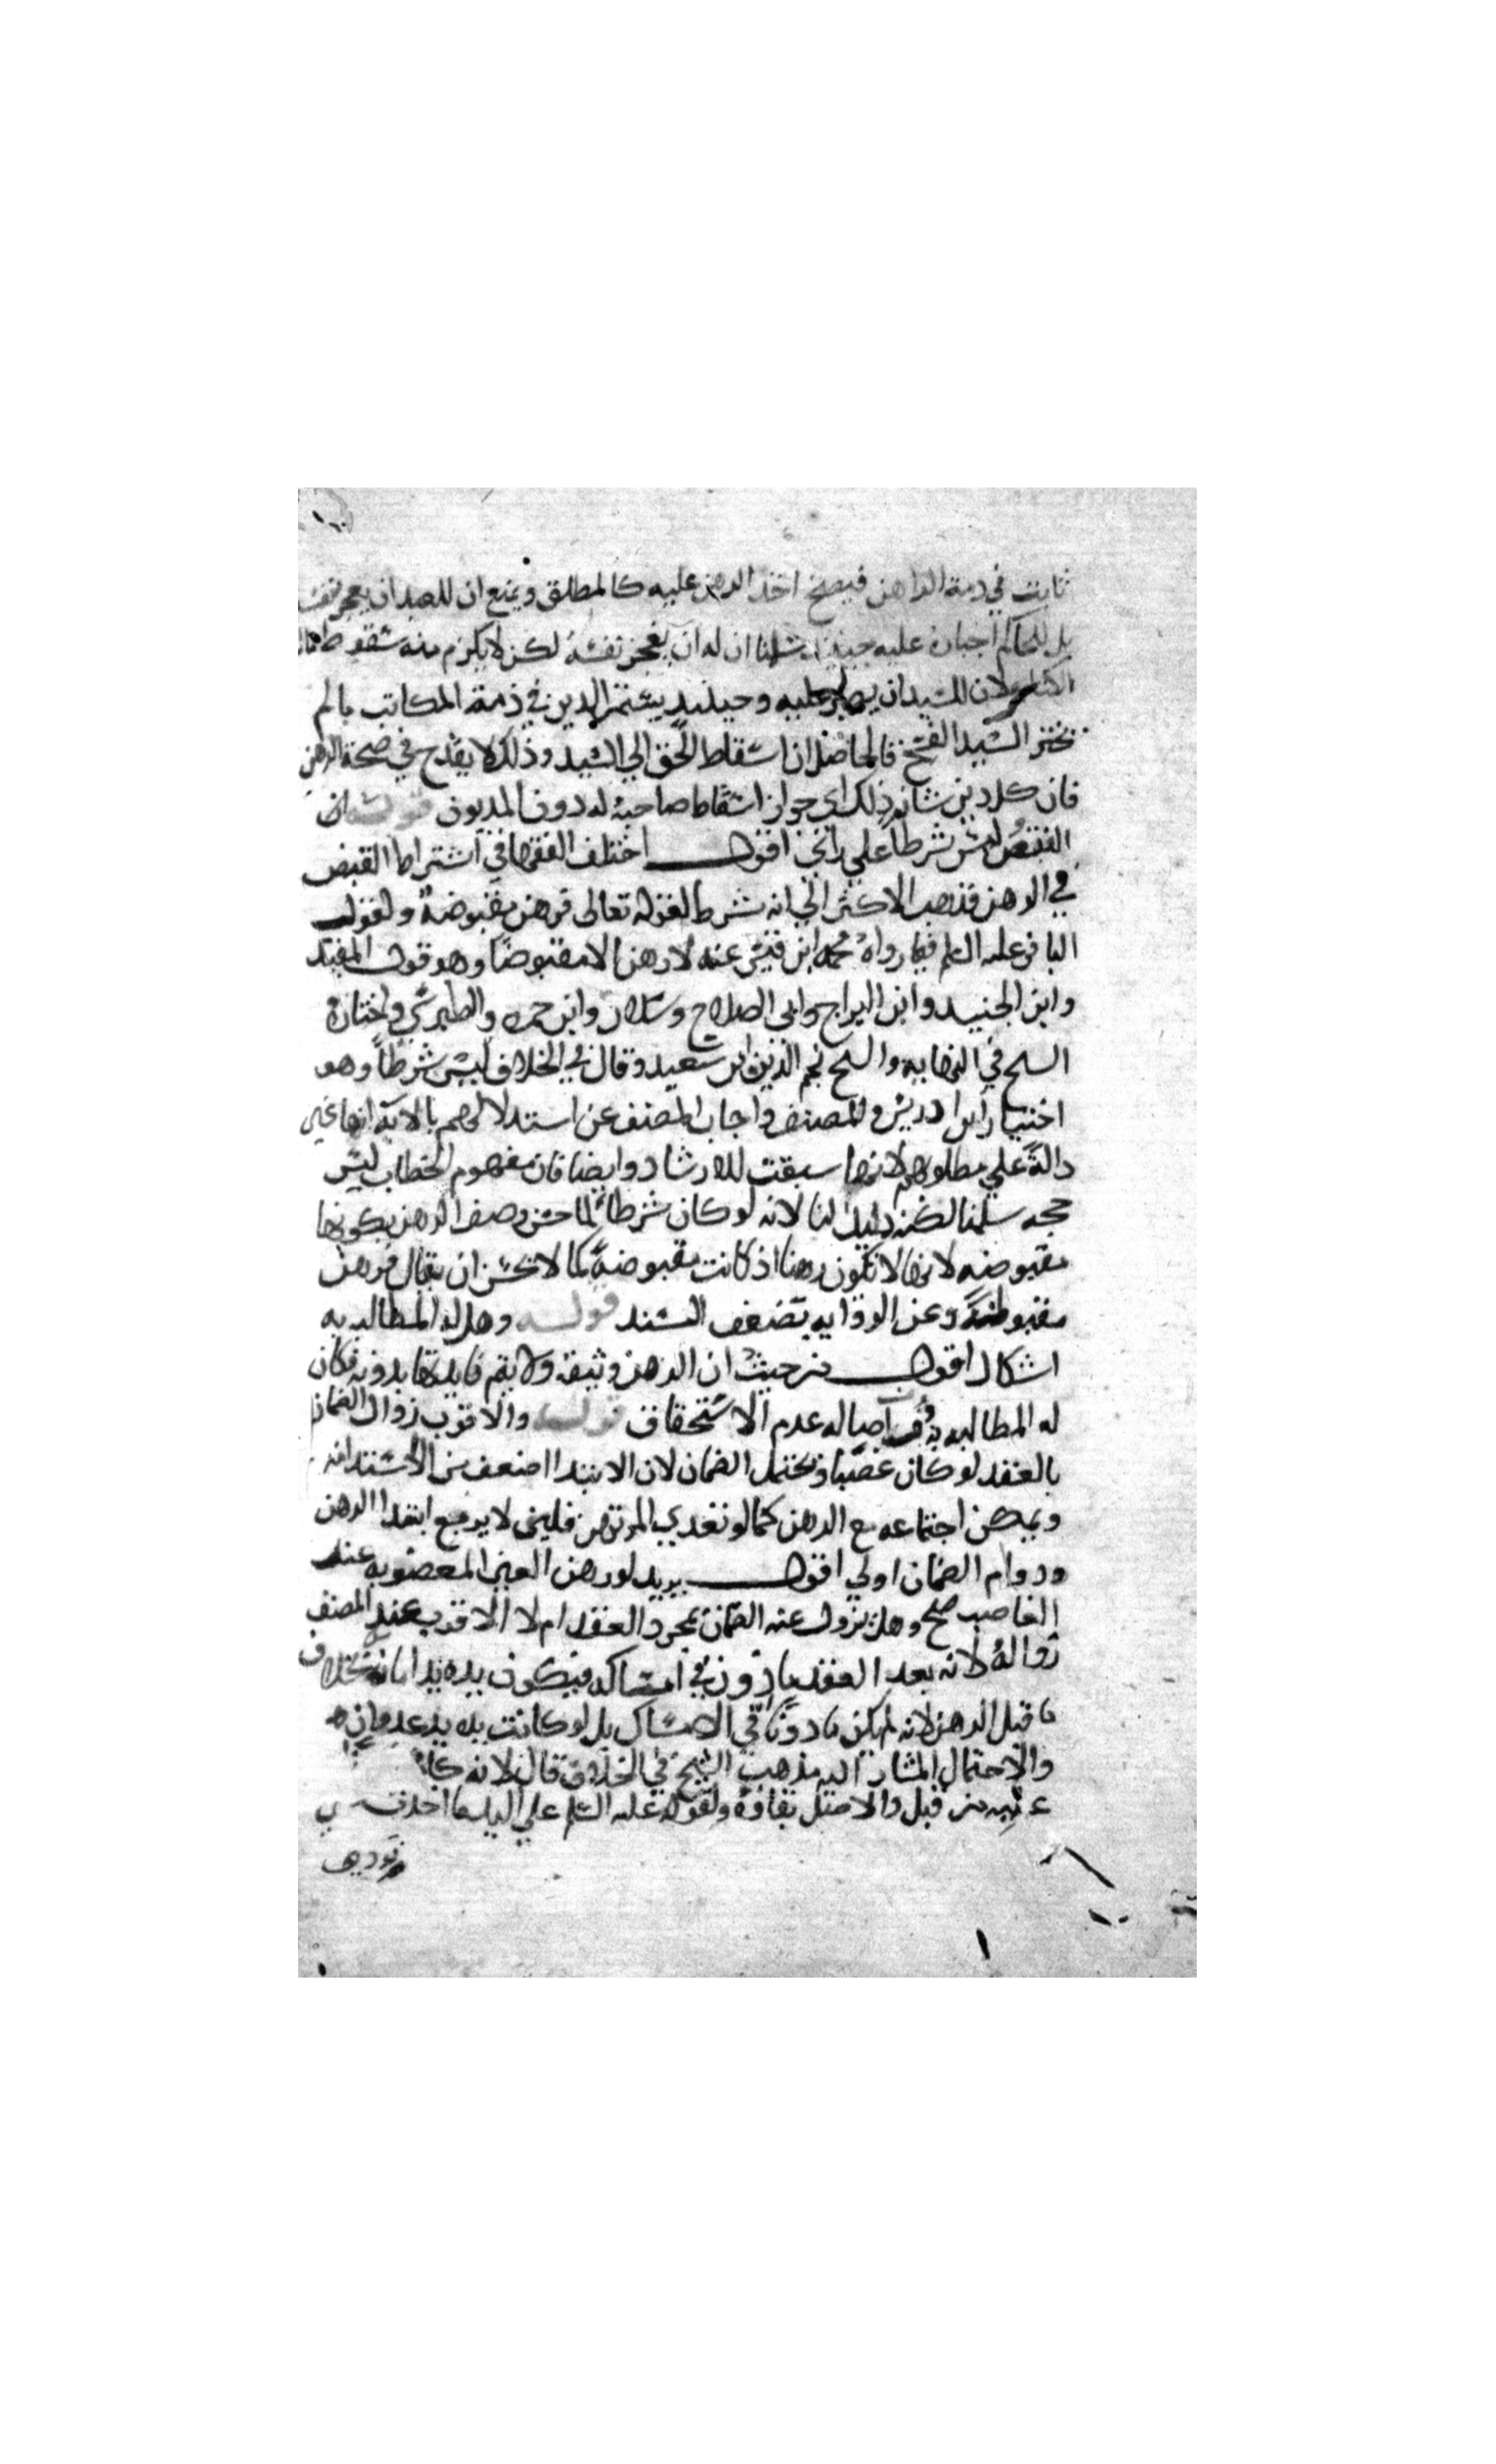 ثابت في ذمة الراهن فيصح اخذ الرهن عليه كالمطلق ويمنع ان للعبد ان يعجز نفسه
بل للحاكم اجباره عليه حينئذ سلمنا ان له ان يعجز نفسه لكن لا يلزم منه سقوط مال
الكتابة لان للسيد ان يصابر عليه وحينئذ يستمر الدين في ذمة المكاتب ما لم
يختر السيد الفسخ فالحاصل ان اسقاط الحق الي السيد وذلك لا يقدح في صحة الرهن
فان كل دين شانه ذلك اي جواز اسقاط صاحبه له دون المديون قوله ان
القبض ليس شرطا علي راي اقول اختلف الفقها في اشتراط القبض
في الرهن فذهب الاكثر الي انه شرط لقوله تعالى فرهن مقبوضة ولقول
الباقر عليه السلم فيما رواه محمد ابن قيس عنه لا رهن الا مقبوضا وهو قول المفيد
وابن الجنيد وابن البراج وابي الصلاح وسلار وابن حمزه والطبرسي واختاره
الشيخ في النهايه والشيخ نجم الدين ابن سعيد وقال في الخلاف ليس شرطا وهو
اختيار ابن ادريس والمصنف واجاب المصنف عن استدلالهم بالاية انها غير
دالة علي مطلوبهم لانها سيقت للارشاد وايضا فان مفهوم الخطاب ليس
حجه سلمنا لكنه دليل لنا لانه لو كان شرطا لما حسن وصف الرهن بكونها
مقبوضه لانها لا تكون رهنا اذ كانت مقبوضة كما لا يحسن ان يقال فرهن
مقبوضة وعن الروايه بضعف السند قوله وهل له المطالبه به
اشكال اقول من حيث ان الرهن وثيقه ولا يتم فايدتها بدونه فكان
له المطالبه به ومن اصاله عدم الاستحقاق قوله والاقرب زوال الضمان
بالعقد لو كان غصبا ويحتمل الضمان لان الابتدا اضعف من الاستدامه
ويمكن اجتماعه مع الرهن كما لو تعدي المرتهن فليس لا يرفع ابتدا الرهن
ودوام الضمان اولي اقول يريد لو رهن العين المغصوبه عند
الغاصب صح وهل يزول عنه الضمان بمجرد العقد ام لا الاقرب عند المصنف
زواله لانه بعد العقد ماذون في امساكه فيكون يده يد امانة بخلاف
ما قبل الرهن لانه لم يكن ماذونا في الامساك بل لو كانت يده يد عدوان
والاحتمال المشار اليه مذهب الشيخ في الخلاف قال لانه كان
عليه من قبل والاصل بقاوه ولقوله عليه السلم علي اليد ما اخذت
تودي